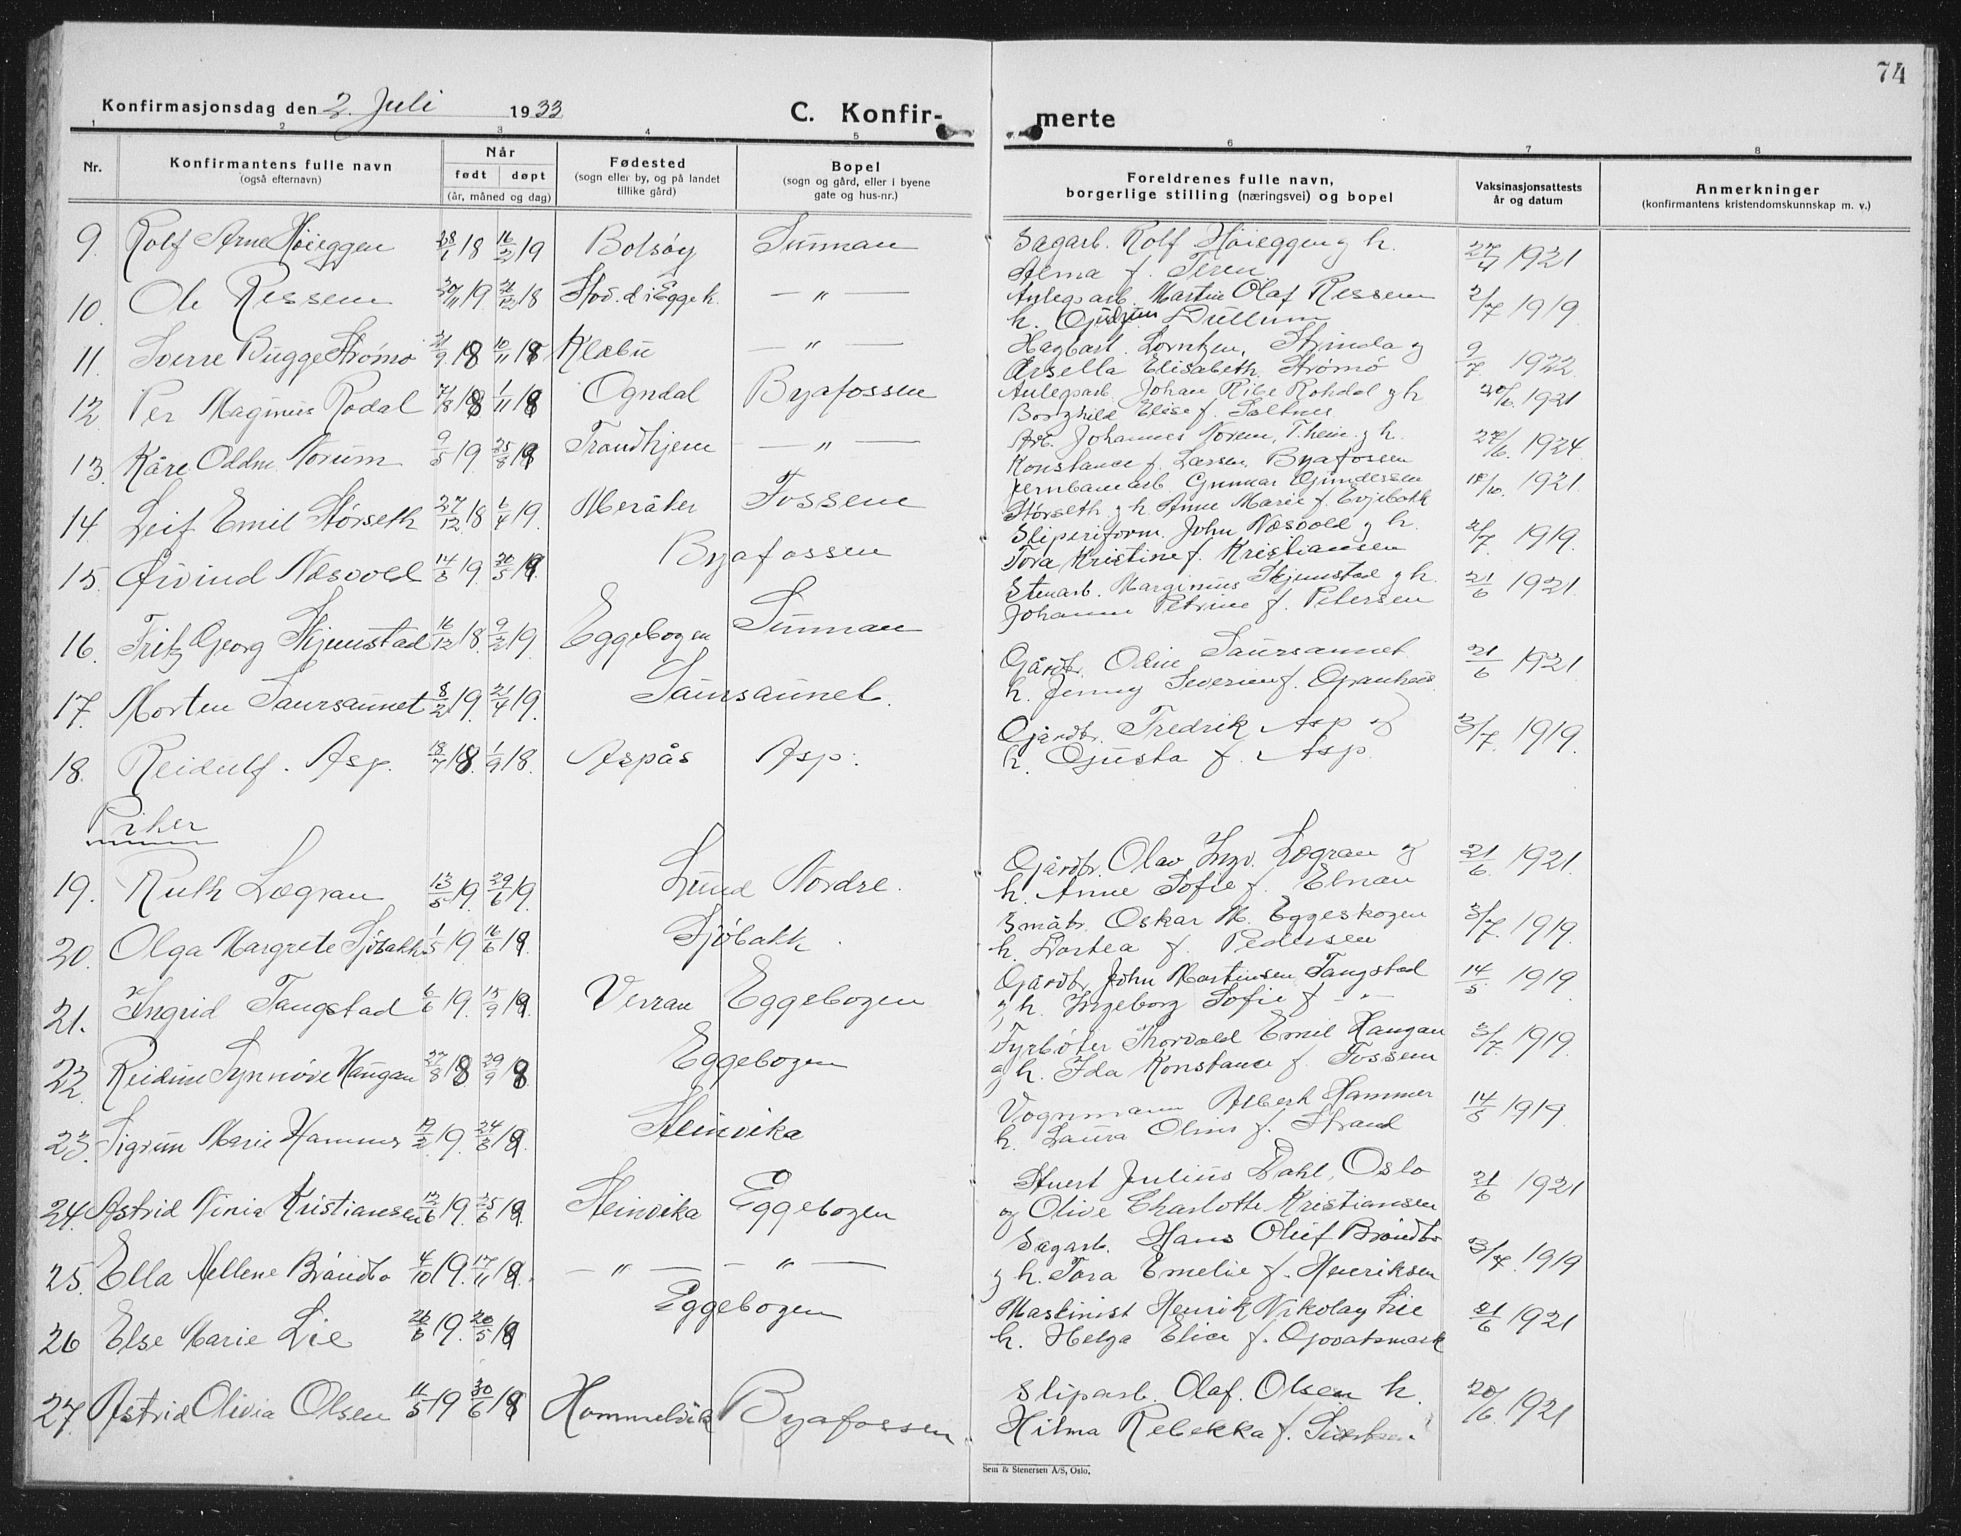 74
Konfirmasjonsdag den 2. Juli 1933
C. Konfir-
merte
1 2 3 4 5 6 7 8
Nr.
Konfirmantens fulle navn
(også efternavn)
Når
født døpt
(år, måned og dag)
Fødested
(sogn eller by, og på landet
tillike gård)
Bopel
(sogn og gård, eller i byene
gate og hus-nr.)
Foreldrenes fulle navn,
borgerlige stilling (næringsvei) og bopel
Vaksinasjonsattests
år og datum
Anmerkninger
(konfirmantens kristendomskunnskap m. v.)
9. Rolf Arne Høieggen 18 16/2 19 Bolsøy Sunnan Sagarb. Rolf Høieggen og h. 1921
Alma f. Teren
10. Ole Ressem 18 Stod. d. i Egge k. — " — Anlegsarb. Martin Olaf Ressem 2/7 1919
h. Gudrun Dullum
11. Sverre Bugge Strømø 21/9 18 10/11 18 Klæbu — " — Hagbart Lorntzen, Strinda og 9/7 1922
Arsella Elisabeth Strømø
12. Per Magnus Rodal 18 1/11 18 Ogndal Byafossen Anlegsarb. Johan Ribe Rohdal og h 20/6 1921
Borghild Elise f. Saltnes
13. Kåre Oddm. Norum 9/5 19 25/8 19 Trondhjem — " — Arb. Johannes Norum, T.heim og h. 27/6 1924
Konstance f. Larsen, Byafossen
14. Leif Emil Størseth 27/12 18 6/4 19. Meråker Fossem Jernbanearb. Gunnar Gundersen 1921
Størseth og h. Anne Marie f. Evjebakk
15. Øivind Næsvold 14/3 19. 20/5 19. Byafossen Sliperiform. John Næsvold og h. 2/7 1919.
Tora Kristine f. Kristiansen
16. Fritz Georg Skjemstad 16/12 18. 9/2 19. Eggebogen Sunnan Stenarb. Marginius Skjemstad og h. 21/6 1921
Johanne Petrine f. Petersen
17. Morten Saursaunet 8/2 19. 21/4 19. Saursaunet. Gårdbr. Odin Saursaunet 21/6 1921
h. Jenny Severine f. Granhus
18. Reidulf. Asp. 18/7 18. 1/9 18. Aspås Asp. Gårdbr. Fredrik Asp og 3/7 1919.
h. Gusta f. Asp.
Piker
19. Ruth Lægran 13/5 19. 29/6 19. Lund Nordre. Gårdbr. Olav Ingv. Lægran og 21/6 1921.
h. Anne Sofie f. Elnan
20. Olga Margrete Sjøbakk 1/5 19 16/6 19. Sjøbakk. Småbr. Oskar M. Eggeskogen 3/7 1919.
h. Dortea f. Pedersen
21. Ingrid Tangstad 6/6 19. 15/9 19. Verran Eggebogen Gårdbr. John Martinsen Tangstad 14/5 1919.
og h. Ingeborg Sofie f. — " —
22. Reidun Synnøve Haugan 27/8 18 29/9 18. Eggebogen Fyrbøter Thorvald Emil Haugan 3/7 1919.
og h. Ida Konstance f. Fossem
23. Sigrun Marie Hammer 19. 24/3 19. Steinvika Vognmann Albert Hammer 14/5 1919.
h. Laura Oline f. Strand
24. Astrid Ninia Kristiansen 12/6 19. 25/6 19. Steinvika Eggebogen Stuert Julius Dahl, Oslo 21/6 1921
og Olive Charlotte Kristiansen
25. Ella Hellene Brandbo 4/10 19. 17/11 19. — " — — " — Sagarb. Hans Oluf Brandbo 3/7 1919
og h. Tora Emelie f. Henriksen
26 Else Marie Lie 19. 20/5 19 Eggebogen Maskinist Henrik Nikolay Lie 21/6 1921
h. Helga Elise f. Govatsmark
27. Astrid Olivia Olsen 11/5 19 30/6 19 Hommelvik Byafossen Sliparb. Olaf Olsen h. 20/6 1921
Hilma Rebekka f.
Sem & Stenersen A/S, Oslo.